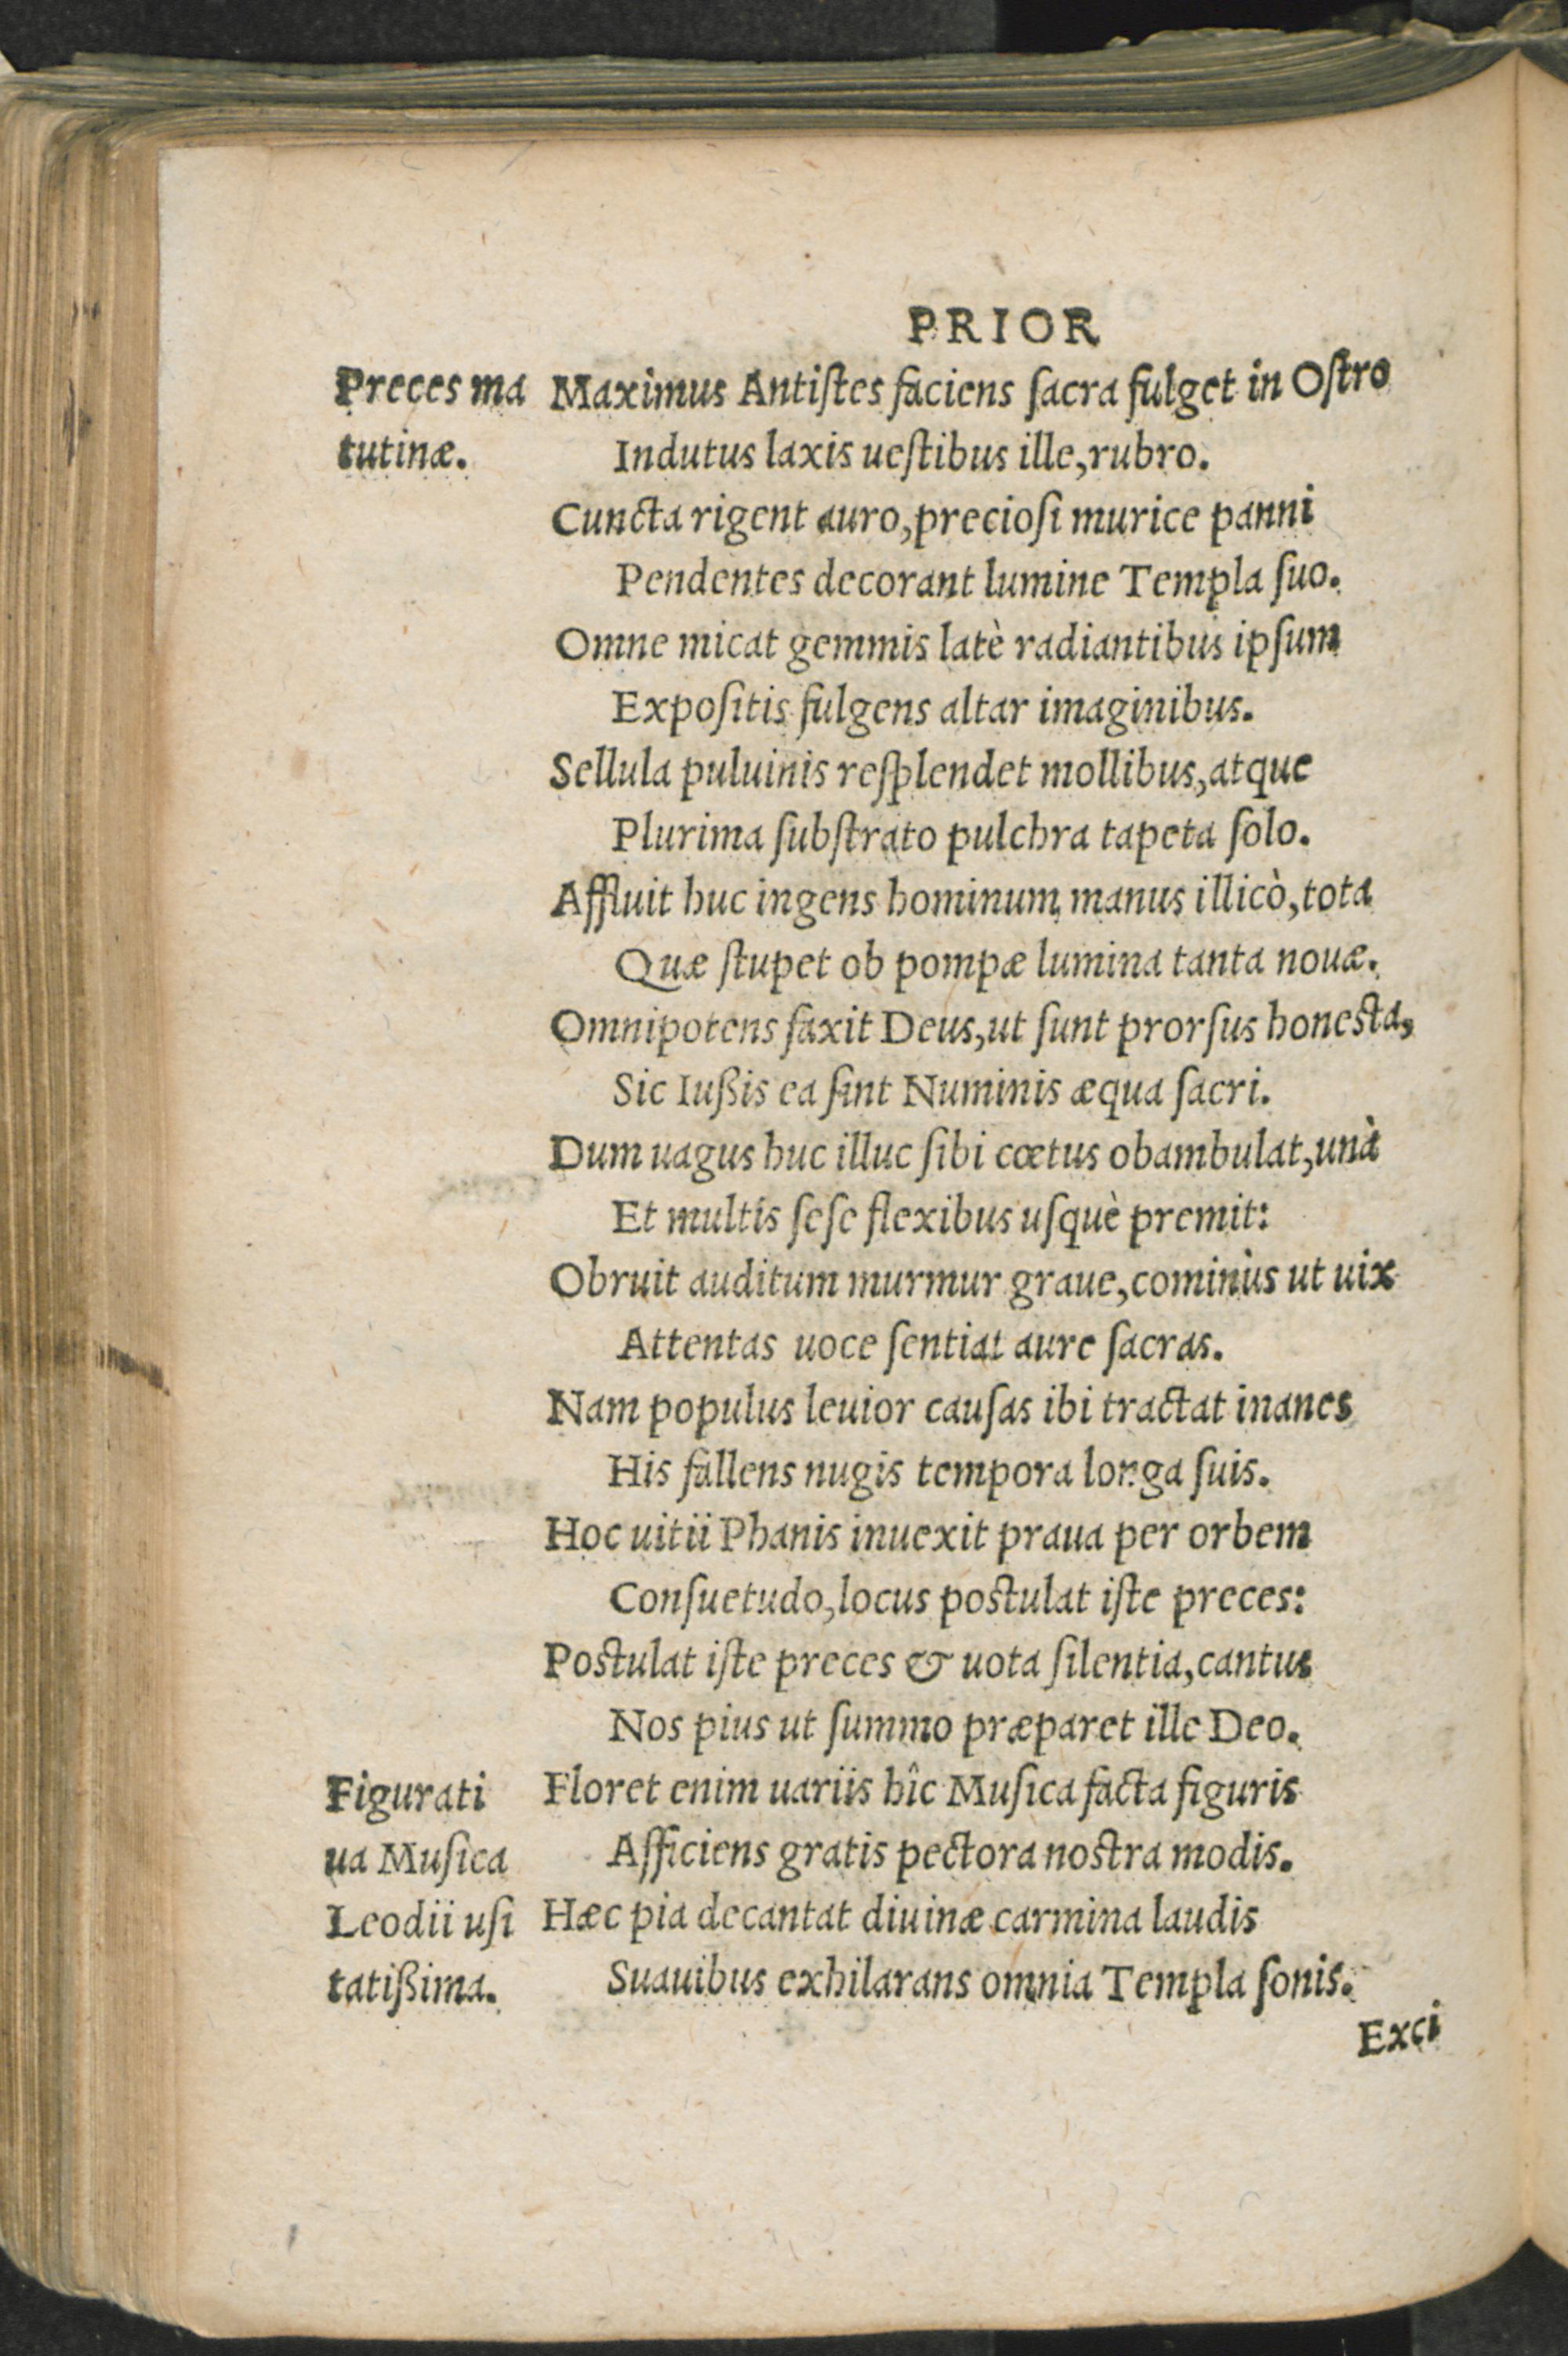 PRIOR
Preces ma
tutinæ.
Maximus Antiſtes faciens ſacra fulget in Oſtro
Indutus laxis ueſtibus ille, rubro.
Cuncta rigent auro, precioſi murice panni
Pendentes decorant lumine Templa ſuo.
Omne micat gemmis latè radiantibus ipſum
Expoſitis fulgens altar imaginibus.
Sellula puluinis reſplendet mollibus, atque
Plurima ſubſtrato pulchra tapeta ſolo.
Affluit huc ingens hominum manus illicò, tota
Quæ ſtupet ob pompæ lumina tanta nouæ.
Omnipotens faxit Deus, ut ſunt prorſus honeſta,
Sic Iußis ea ſint Numinis æqua ſacri.
Dum uagus huc illuc ſibi cœtus obambulat, unà
Et multis ſeſe flexibus uſquè premit:
Obruit auditum murmur graue, cominùs ut uix
Attentas uoce ſentiat aure ſacras.
Nam populus leuior cauſas ibi tractat inanes
His fallens nugis tempora longa ſuis.
Hoc uitii Phanis inuexit praua per orbem
Conſuetudo, locus poſtulat iſte preces:
Poſtulat iſte preces & uota ſilentia, cantus
Nos pius ut ſummo præparet ille Deo.
Figurati
ua Muſica
Leodii uſi
tatißima.
Floret enim uariis hîc Muſica facta figuris
Afficiens gratis pectora noſtra modis.
Hæc pia decantat diuinæ carmina laudis
Suauibus exhilarans omnia Templa ſonis.
Exci